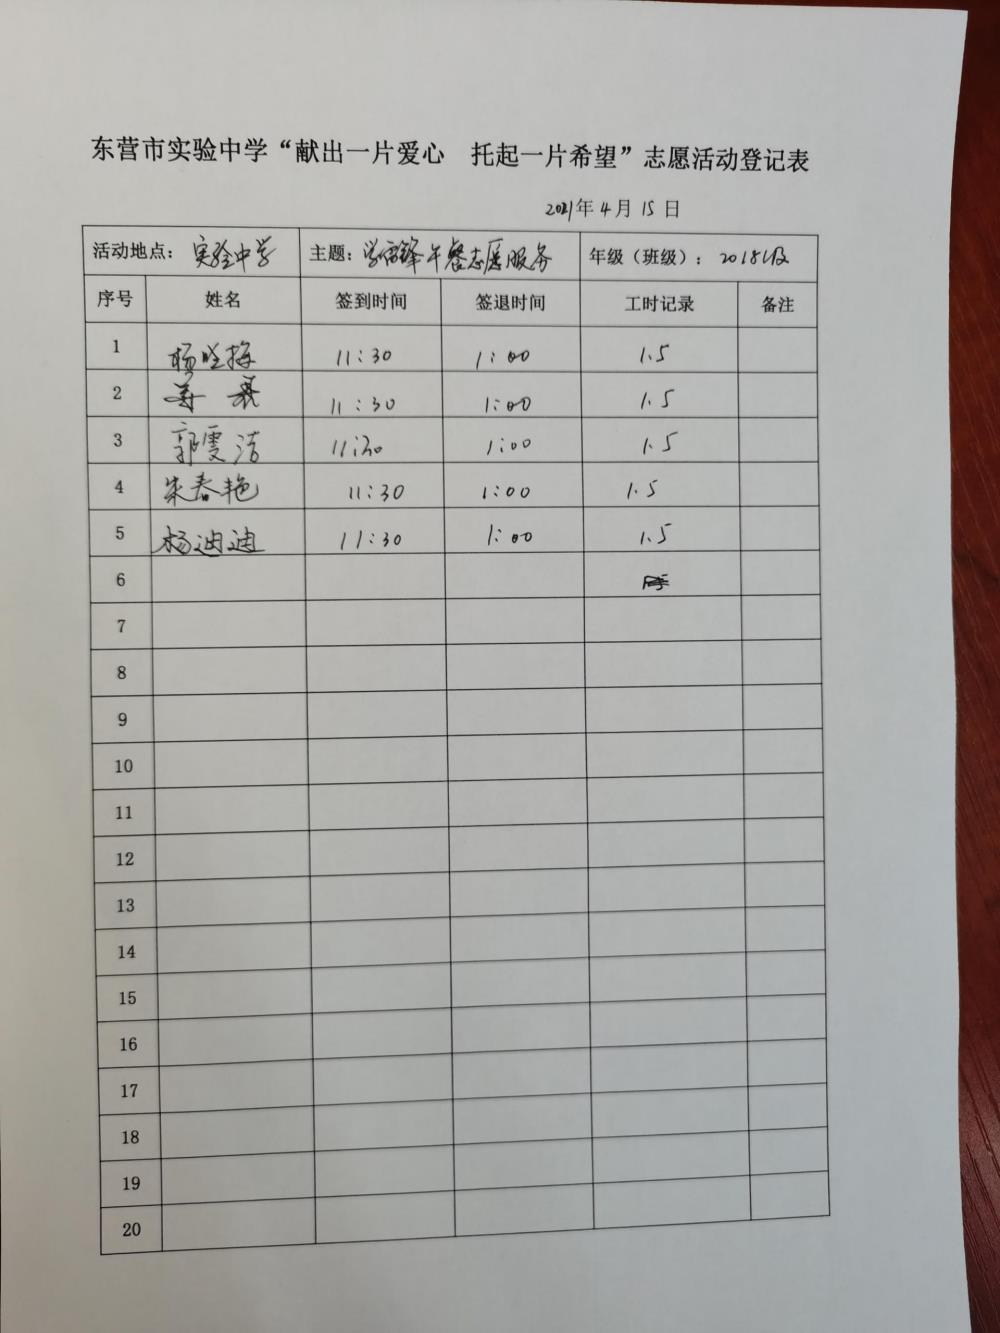 东营市实验中学“献出一片爱心 托起一片希望”志愿活动登记表
2021年4月15日
活动地点：实验中学 主题：学雷锋午餐志愿服务 年级（班级）：2018级
序号 姓名 签到时间 签退时间 工时记录 备注
1 杨晓梅 11:30 1:00 1.5
2 11:30 1:00 1.5
3 郭雯洁 11:30 1:00 1.5
4 朱春艳 11:30 1:00 1.5
5 杨迪迪 11:30 1:00 1.5
6
7
8
9
10
11
12
13
14
15
16
17
18
19
20